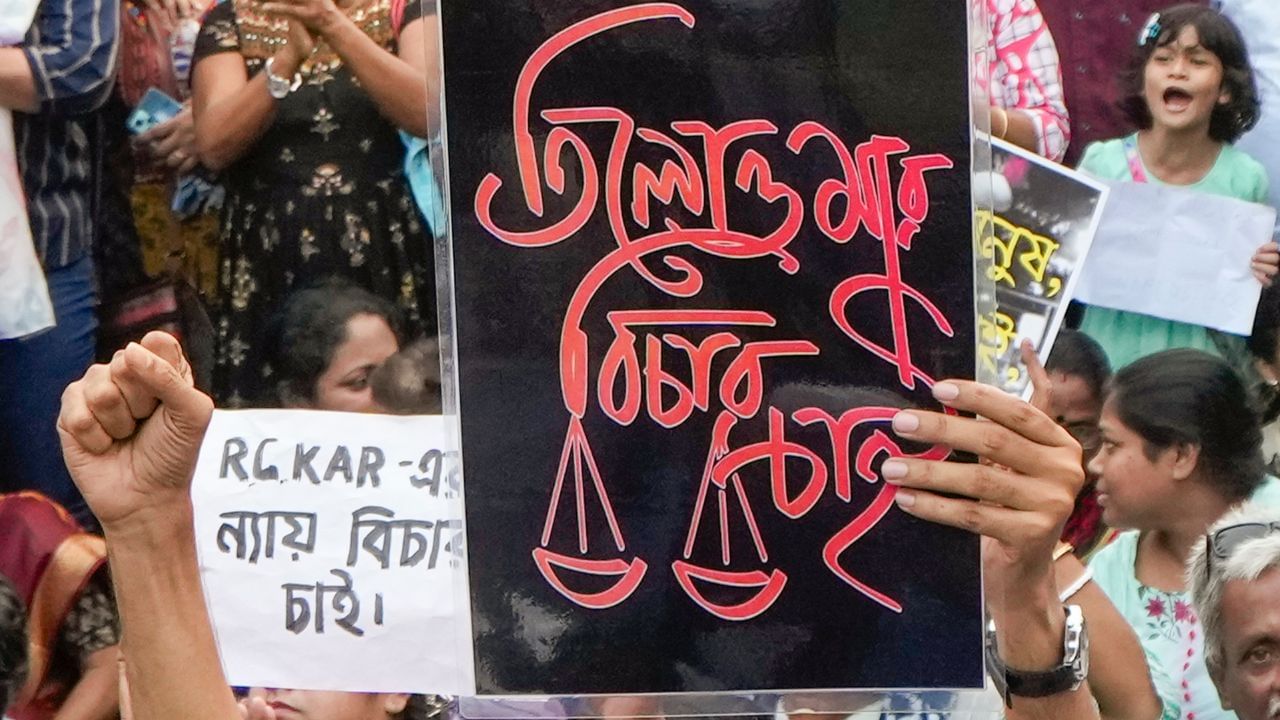 তিলোত্তমার
বিচার
চাই
R.G.KAR -এর
ন্যায় বিচার
চাই।